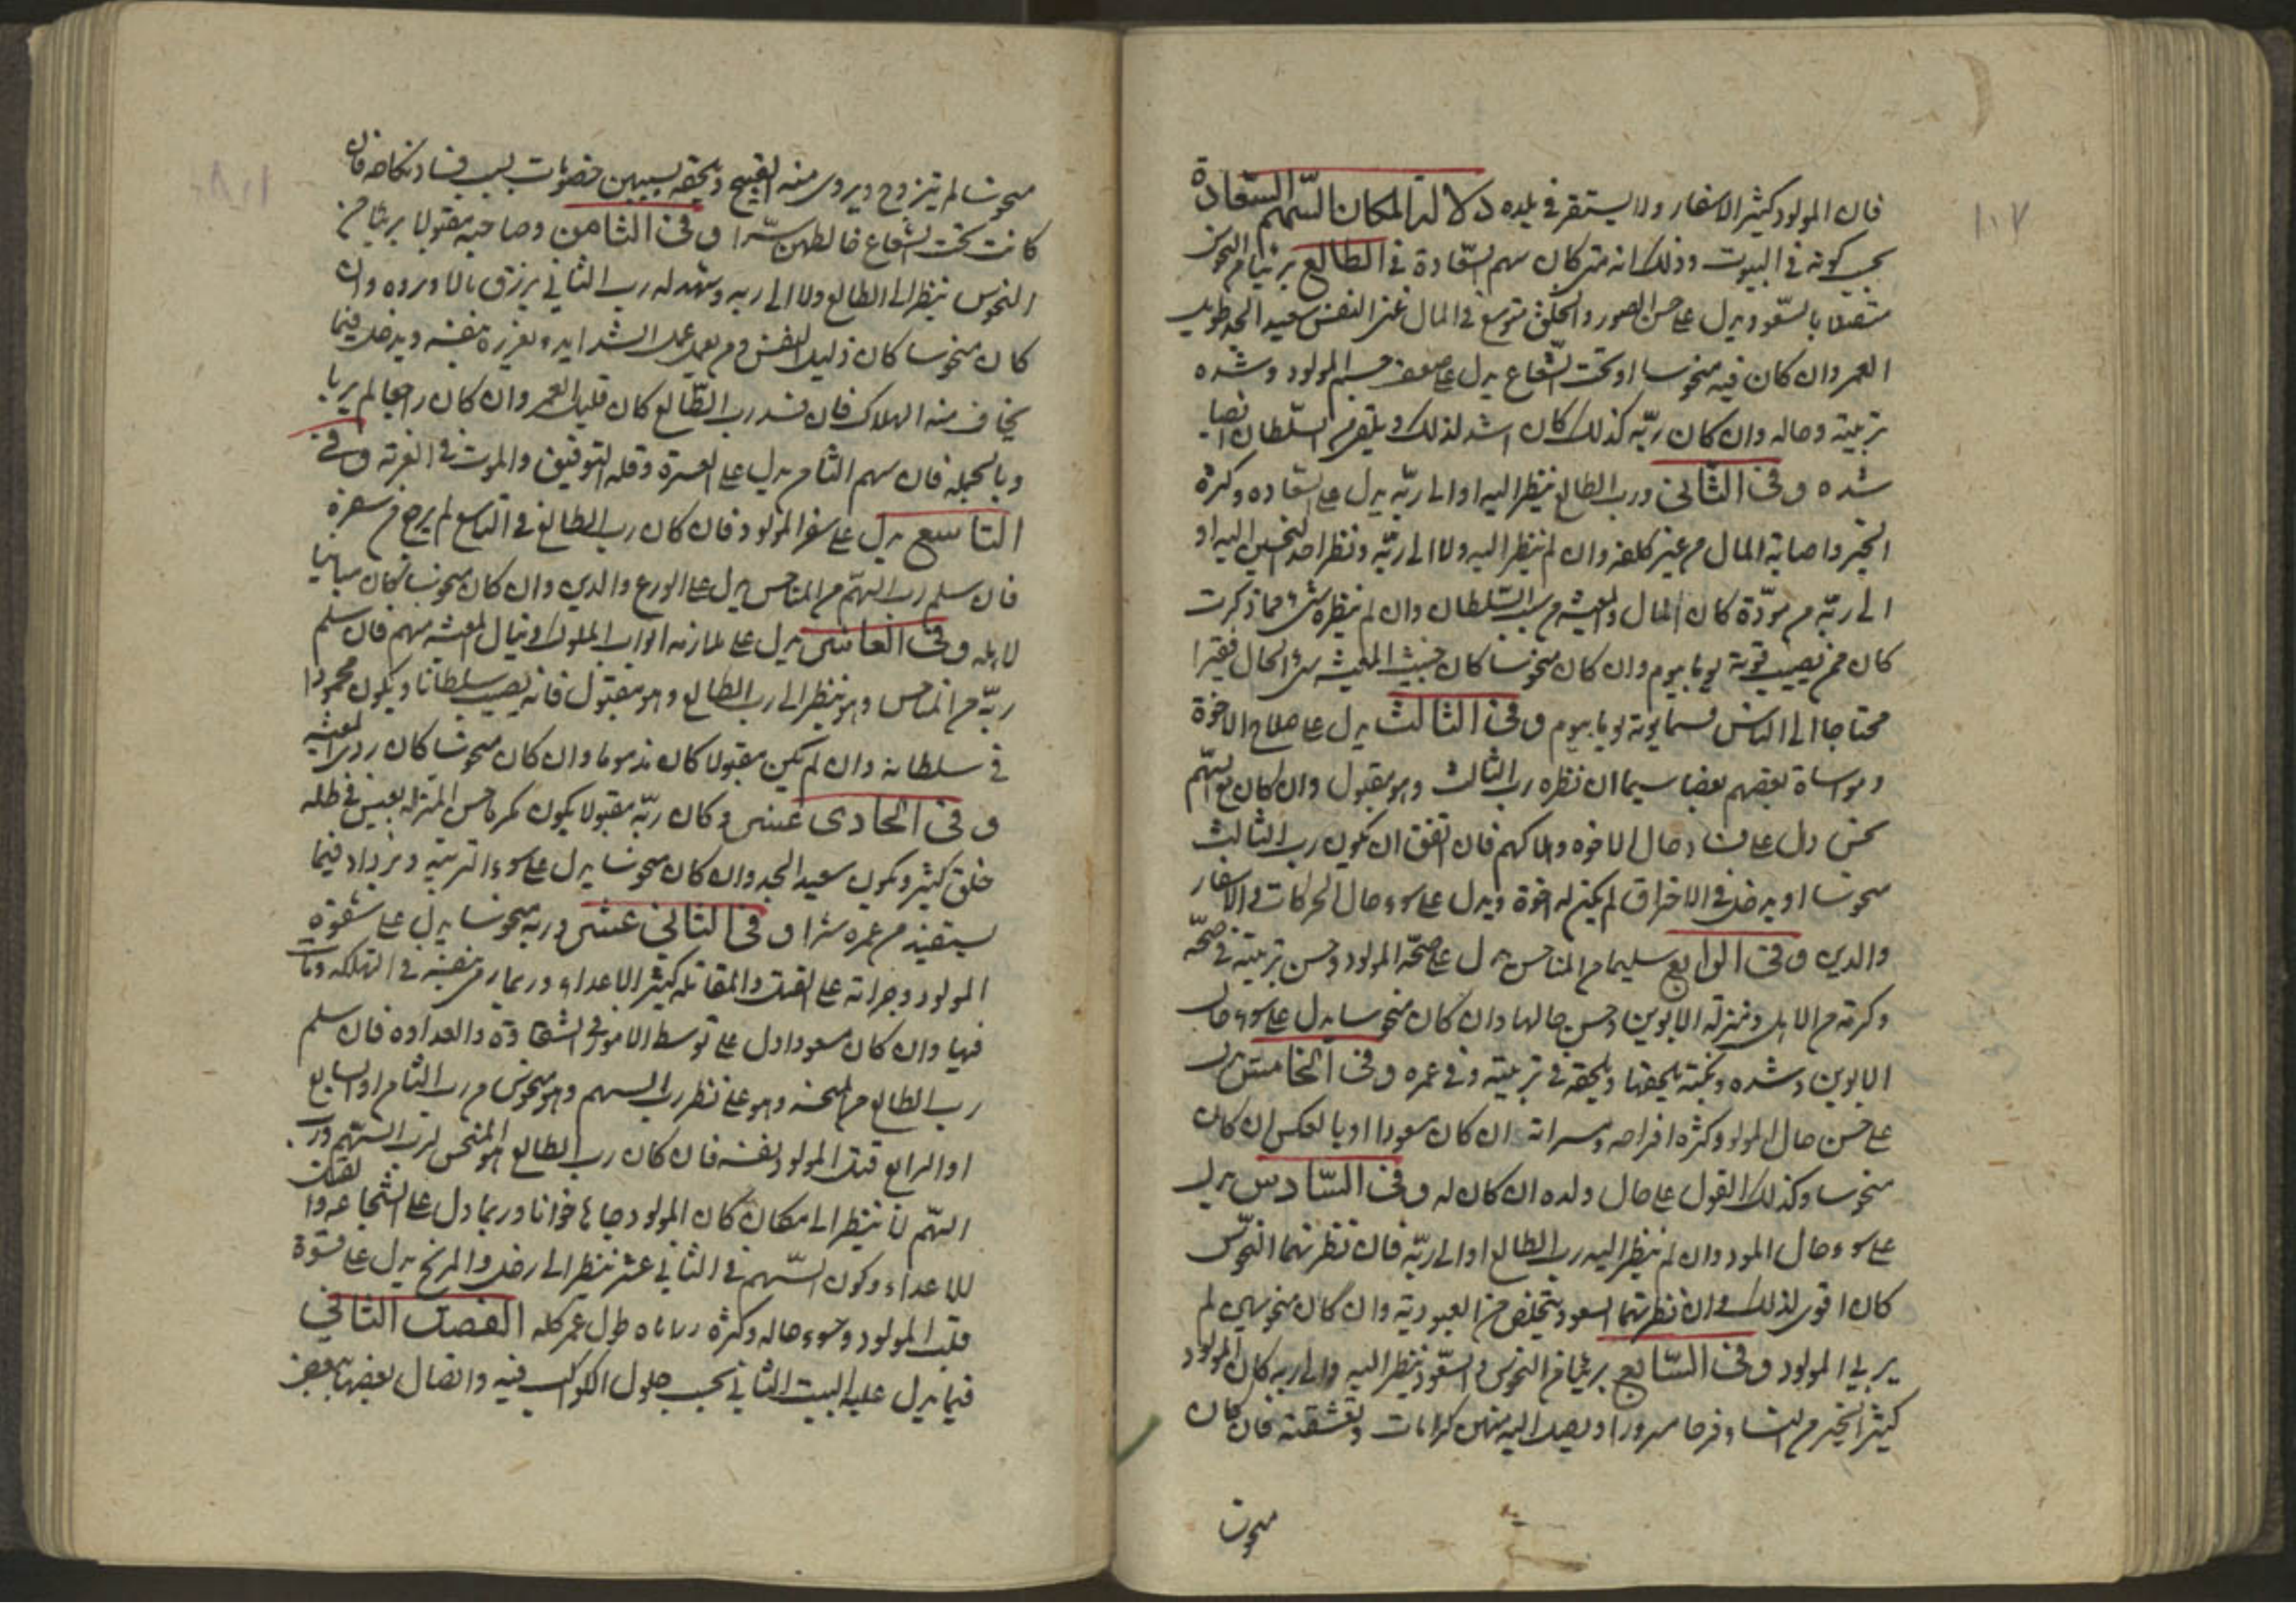 فان المولود كثير الاسفار ولا يستقر في بلده دلالة المكان السهم السعادة
بحسب كونه في البيوت وذلك انه متى كان سهم السعادة في الطالع بريئا من النحوس
متصلا بالسعود يدل على حسن الصور والخلق متوسع في المال غنى النفس سعيد الجد طويل
العمر وان كان فيه منحوسا او تحت الشعاع يدل على ضعف جسم المولود وشده
تربيته وحاله وان كان ربّه كذلك كان اشد لذلك ويلقى من السلطان انصابا
شده و في الثانى ورب الطالع ينظر اليه او الى ربّه يدل على السعاده وكثرة
الخير واصابة المال من غير كلفه وان لم ينظر اليه ولا الى ربّه ونظر احد النحسين اليه او
الى ربّه من مودّة كان المال والمعيشه من سبب السلطان وان لم ينظره شئ مما ذكرت
كان ممن يصيب قوته يوما بيوم وان كان منحوسا كان خبيث المعيشه سئ الحال فقيرا
محتاجا الى الناس فيما قوته يوما بيوم و في الثالث يدل على صلاح الاخوة
ومواساة بعضهم بعضا سيما ان نظره رب الثالث وهو مقبول وان كان مع السهم
نحس دل على فساد حال الاخوه وهلاكهم فان اتفق ان يكون رب الثالث
منحوسا او يدخل في الاحتراق لم يكن له اخوة ويدل على سوء حال الحركات في الاسفار
والدين و في الرابع سليما من المناحس يدل على صحّة المولود وحسن تربيته في صحّه
وكرمه من الاهل ومنزلة الابوين وحسن حالهما وان كان منحوسا يدل على سوء حال
الابوين وشده ونكبة يلحقها ويلحقه في تربيته وفي عمره و في الخامس يدل
على حسن حال المولود وكثرة افراحه ومسراته ان كان مسعودا او بالعكس ان كان
منحوسا وكذلك القول على حال ولده ان كان له و في السّادس يدل
على سوء حال المولود وان لم ينظر اليه رب الطالع او الى ربّه فان نظرتهما النحوس
كان اقوى لذلك وان نظرتهما السعود يتخلص من العبودية وان كان منحوسين لم
يربى المولود و في السّابع بريئا من النحوس والسعود ينظر اليه والى ربه كان المولود
كثير الخير من النساء وفرحا مسرورا ويصل اليه منهن كرامات وتعشقنه فان كان
منحوسا
منحوسا لم يتزوج ويروى منه القبيح ويلحقه بسببهن خصومات بسبب فساد نكاحه فان
كانت تحت الشعاع خالطهن سرّا و في الثامن وصاحبه مقبولا بريئا من
النحوس ينظر الى الطالع ولا الى ربه وشهد له رب الثانى يرزق بالموروه وان
كان منحوسا كان ذليل النفس ومن يعمل عمل الشدايد ويغرر بنفسه ويدخل فيما
يخاف منه الهلاك فان فسد رب الطّالع كان قليل العمر وان كان راجعا لم يربا
وبالجمله فان سهم الثامن يدل على العسرة وقله التوفيق والموت في الغربه و في
التاسع يدل على سفر المولود فان كان رب الطالع في التاسع لم يرجع من سفره
فان سلم رب السهم من المناحس يدل على الورع والدين وان كان منحوسا كان مباينا
لاهله و في العاشر يدل على ملازمه ابواب الملوك وينال المعيشه منهم فان سلم
ربّه من المناحس وهو ينظر الى رب الطالع وهو مقبول فانه يصيب سلطانا ويكون محمودا
في سلطانه وان لم يكن مقبولا كان مذموما وان كان منحوسا كان ردى المعيشه
و في الحادى عشر وكان ربّه مقبولا يكون مكرما حسن المنزله يعيش في ظله
خلق كثير ويكون سعيد الجد وان كان منحوسا يدل على سوء التربيه ويزداد فيما
يستفيد من عمره شرا و في الثانى عشر وربه منحوسا يدل على شقوة
المولود وجراته على القتل والمقاتله كثير الاعداء وربما رمى بنفسه في التهلكه ومات
فيها وان كان مسعودا دل على توسط الامور في الشقاوة والعداوه فان سلم
رب الطالع من المنحسه وهو على نظر رب السهم وهو منحوس من رب الثامن او السابع
او الرابع قتل المولود نفسه فان كان رب الطالع هو المنحس لرب السهم ورب
السهم لا ينظر الى مكانه كان المولود خوانا وربما دل على الشجاعه والقتل
للاعداء وكون السّهم في الثانى عشر ينظر الى زحل والمريخ يدل على قسوة
قلب المولود وسوء حاله وكثرة طول عمره كله الفصل الثانى
فيما يدل عليه البيت الثانى بحسب حلول الكواكب فيه واتصال بعضها ببعض